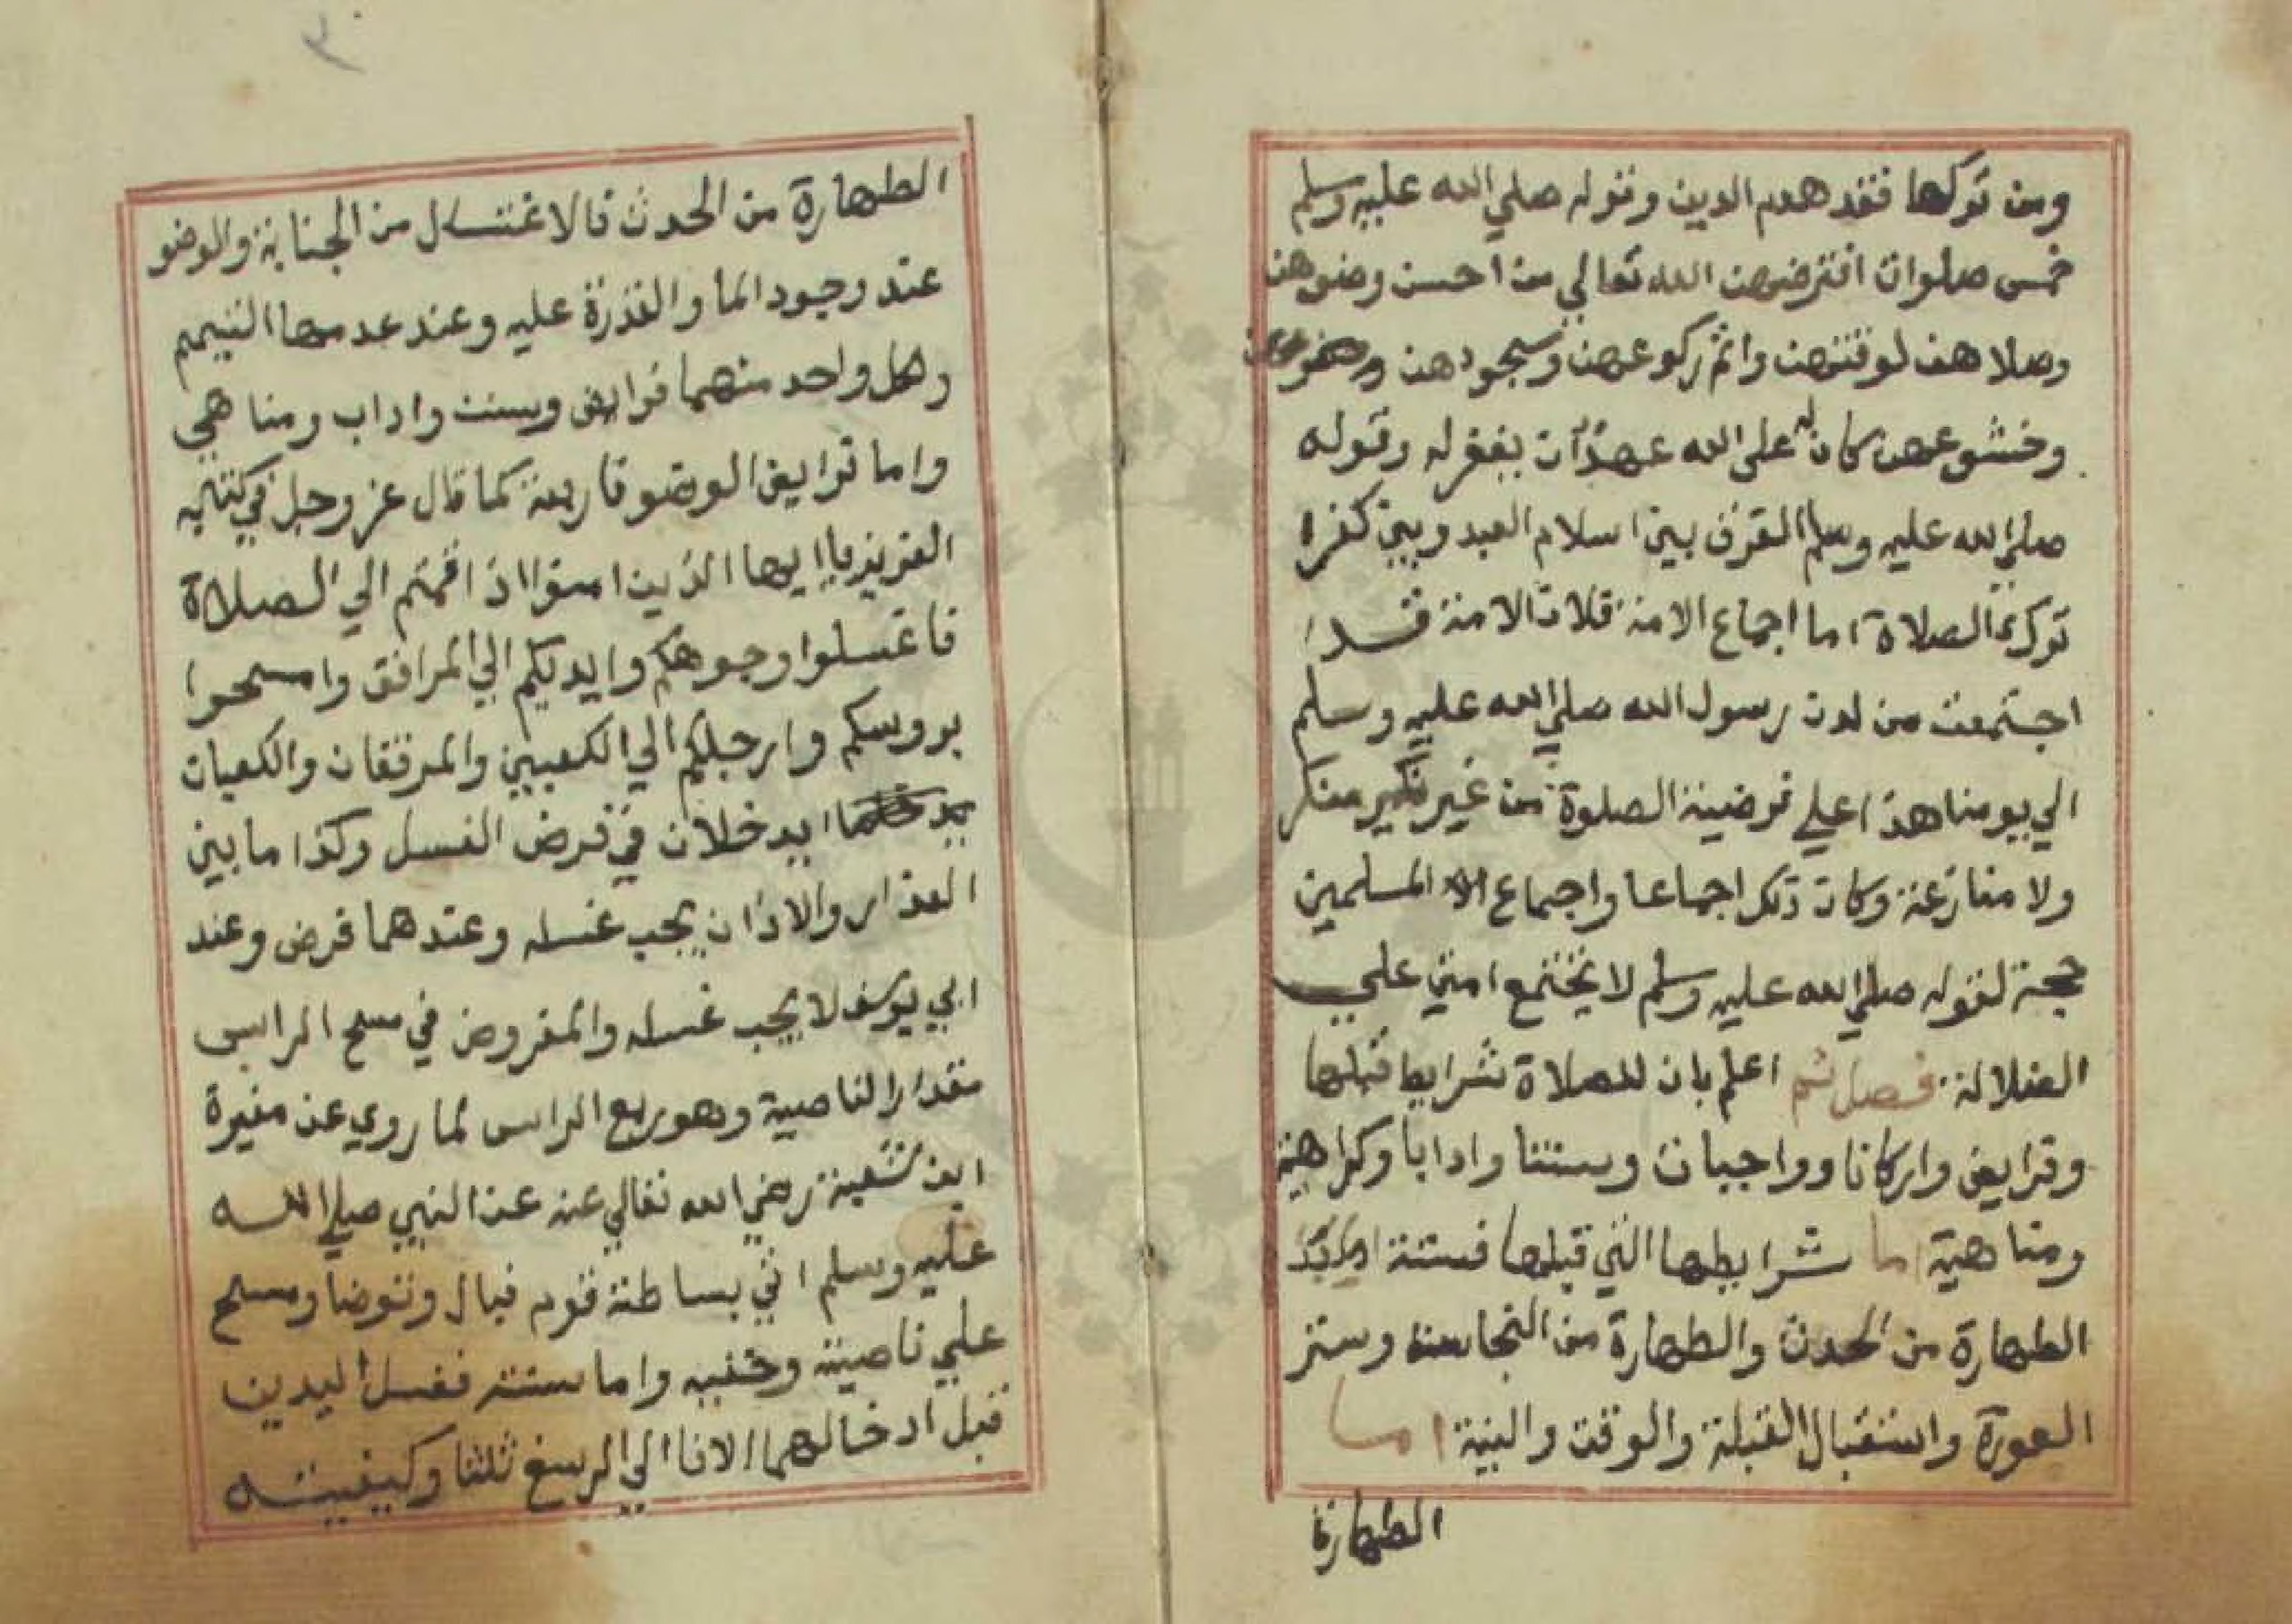 ومن تركها فقد هدم الدين وقوله صلي الله عليه وسلم
خمس صلوات افترضهن الله تعالي من احسن وضوهن
وصلاهن لوقتهن واتم ركوعهن وسجودهن
وخشوعهن كان له علي الله عهدا ان يغفر له وقوله
صلي الله عليه وسلم الفرق بين اسلام العبد وبين كفرا
ترك الصلاة اما اجماع الامة فلان الامة قد
اجتمعت من لدن رسول الله صلي الله عليه وسلم
الي يومنا هذا علي فرضية الصلوة من غير نكير منكر
ولا منازعة وكان ذلك اجماعا واجماع المسلمين
حجة لقوله صلي الله عليه وسلم لا يجتمع امتي علي
الضلالة فصل ثم اعلم بان للصلاة شرايط قبلها
وفرايض واركانا وواجبات وسننا وادابا وكراهية
ومناهية اما شرايطها التي قبلها فستة
الطهارة من الحدث والطهارة من النجاسة وستر
العورة واستقبال القبلة والوقت والنية اما
الطهارة
٣
الطهارة من الحدث فالاغتسال من الجنابة والوضو
عند وجود الما والقدرة عليه وعند عدمها التيمم
ولكل واحد منهما فرايض وسنن واداب ومناهي
واما فرايض الوضو فاربعة كما قال عز وجل في كتابه
العزيز يا ايها الذين امنوا اذا قمتم الي الصلاة
فاغسلوا وجوهكم وايديكم الي المرافق وامسحوا
بروسكم وارجلكم الي الكعبين والمرفقان والكعبان
يدخلان في فرض الغسل وكذا ما بين
العذار والاذان يجب غسله وعندهما فرض وعند
ابي يوسف لا يجب غسله والمفروض في مسح الراس
مقدار الناصية وهو ربع الراس لما روي عن مغيرة
ابن شعبة رضي الله تعالي عنه عن النبي صلي الله
عليه وسلم اتي بساطة قوم فبال وتوضا ومسح
علي ناصيته وخفيه واما سننه فغسل اليدين
قبل ادخالهما الانا الي الرسغ ثلثا وكيفيته